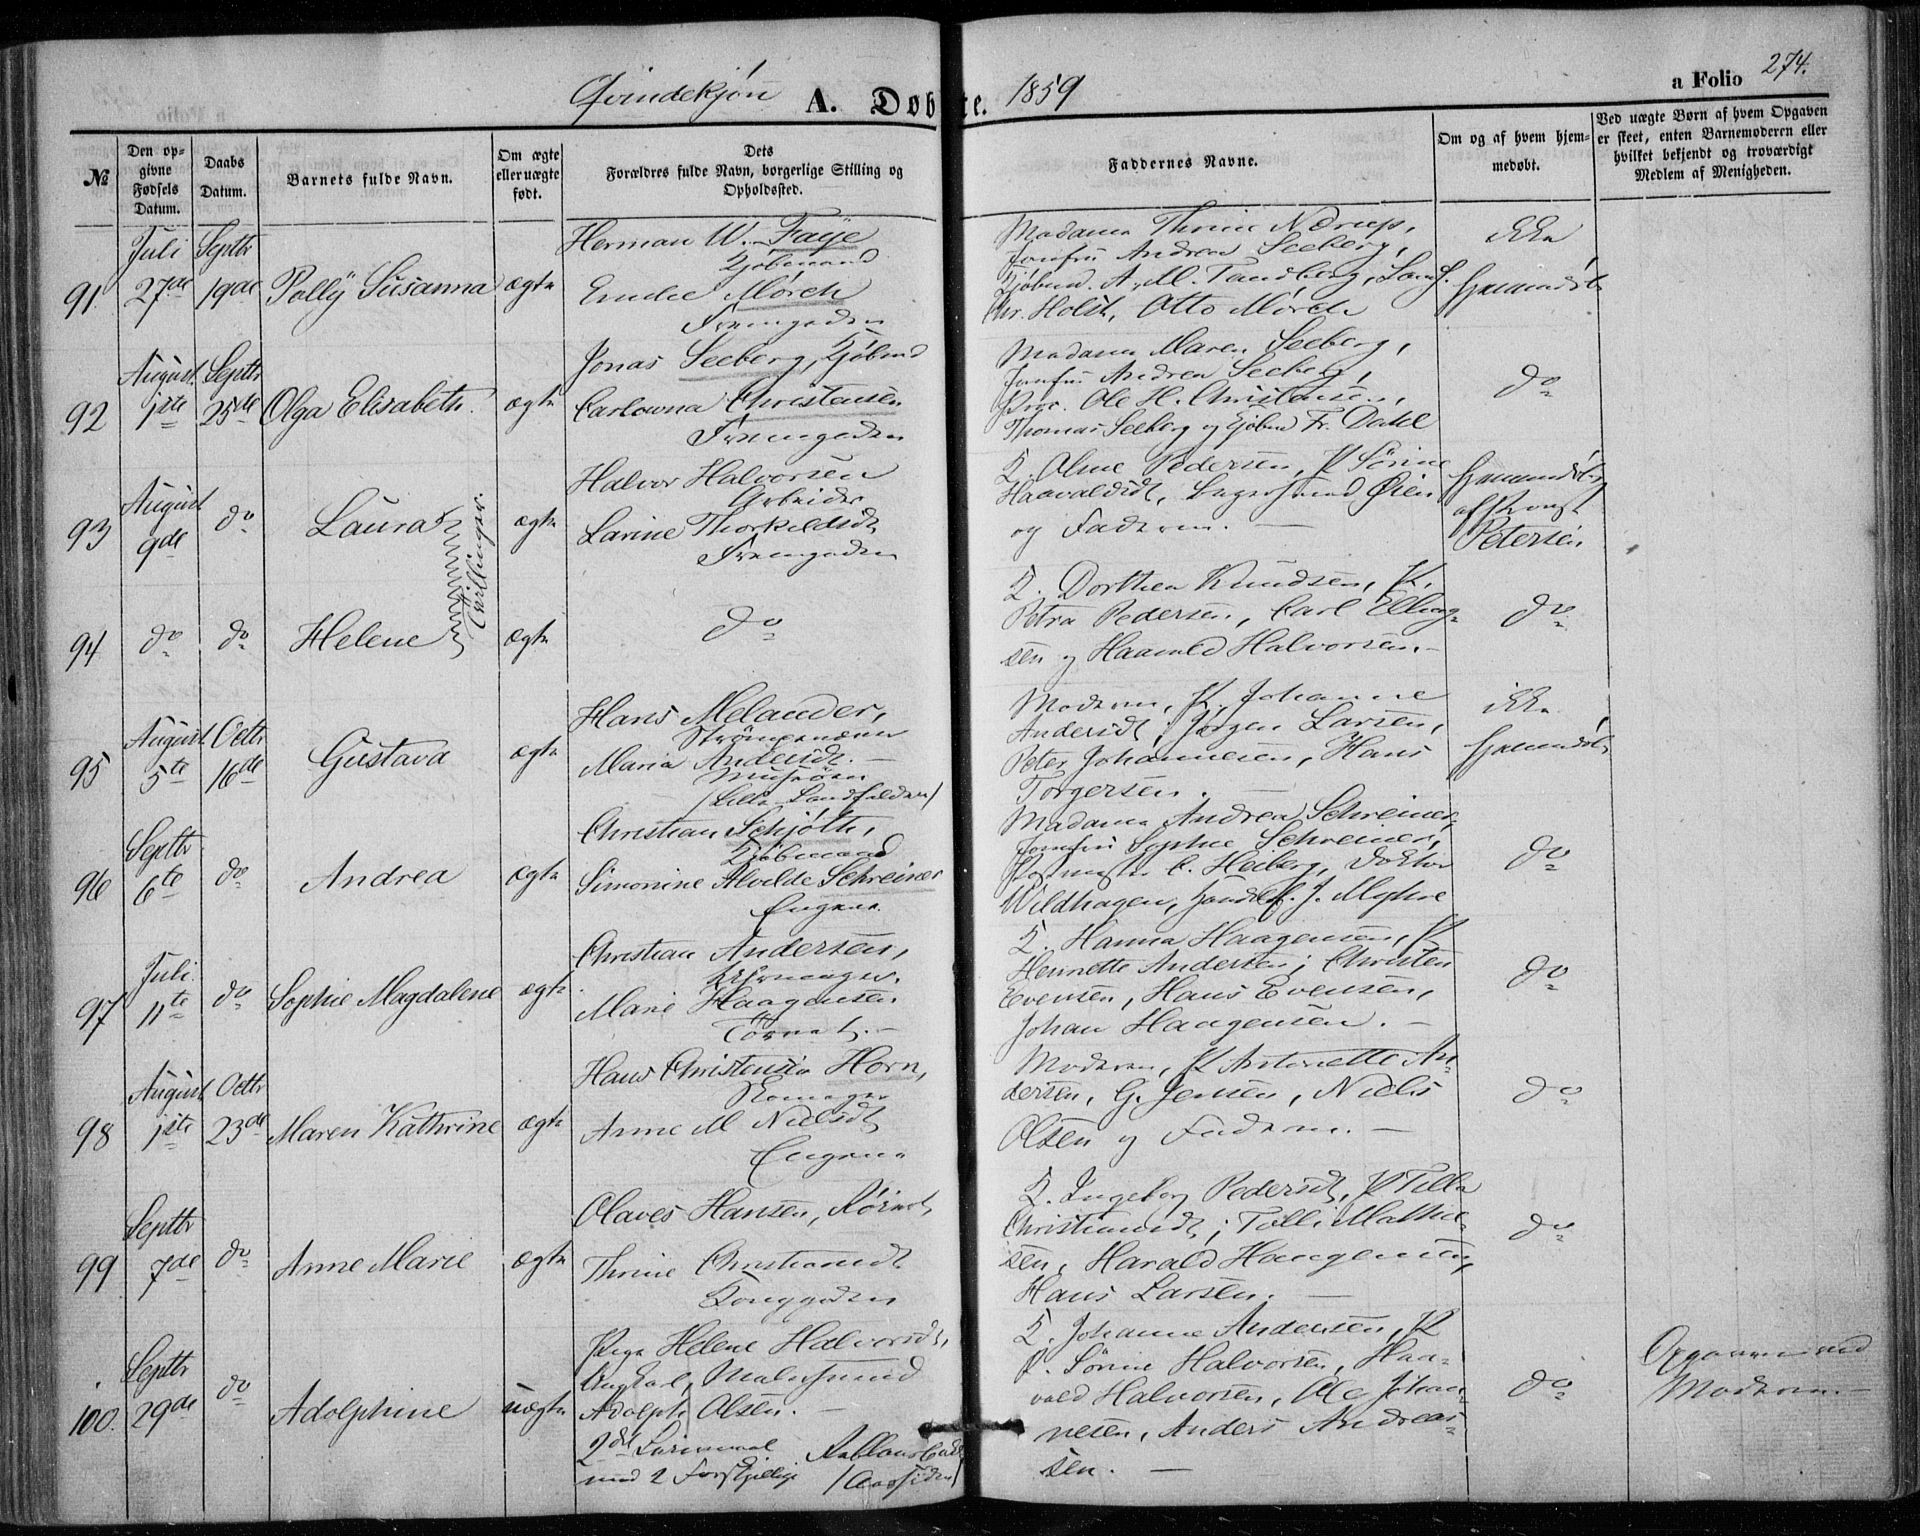 Qvindekjøn A. Døbte. 1859
a Folio 274.
№
Den op-
givne
Fødsels
Datum.
Daabs
Datum.
Barnets fulde Navn.
Om ægte
eller uægte
født.
Dets
Forældres fulde Navn, borgerlige Stilling og
Opholdssted.
Faddernes Navne.
Om og af hvem hjem-
medøbt.
Ved uægte Børn af hvem Opgaven
er skeet, enten Barnemoderen eller
hvilket bekjendt og troværdigt
Medlem af Menigheden.
91.
Juli
27de
Septbr
19de
Polly Susanna
ægte
Herman W. Faye
Kjøbmand
Emilie Mørch
Strømgaden
Madame Thrine Nærup,
Jomfru Andrea Seeberg,
Kjøbmd. A. M. Tandberg,
Chr. Holst, Otto Mørch
ikke
hjemmedøbt
92
August
1ste
Septbr
25de
Olga Elisabeth.
ægte
Jonas Seeberg, Kjøbmd
Carlowna Christensen
Strømgaden
Madame Maren Seeberg,
Jomfru Andrea Seeberg,
Proc. Ole H. Christensen,
Thomas Seeberg og Kjøbmd Fr. Dahl
do
93
August
9de
do
Laura
Tvillinger.
ægte
Halvor Halvorsen
Arbeider
Larine Thorkildsdt
Strømgaden
K. Oline Pedersen, P. Sørine
Haavaldsdt, Øien
og Faderen. —
hjemmedøbt
af
Petersen
94
do
do
Helene
ægte
do
K. Dorthea Knudsen, P.
Petra Pedersen, Carl Elling-
sen og Haavald Halvorsen. —
do
95
August
5te
Octbr
16de
Gustava
ægte
Hans Melander,
Maria Andersdt. —
/Lille Landfalden/
Moderen, P. Johanne
Andersdt; Jørgen Larsen,
Peter Johannesen, Hans
Torgersen. —
ikke
hjemmedøbt
96
Septbr
6te
do
Andrea
ægte
Christian Schjøth,
Kjøbmand
Simonine Alvilde Schreiner
Engene.
Madame Andrea Schreiner,
Jomfru Sophie Schreiner,
Postmester C. Heiberg, Doktor
Wildhagen, Handelsf. J. Myhre
do
97
Juli
11te
do
Sophie Magdalene
ægte
Christian Andersen,
Marie Haagensen
Tørnet. —
K. Hanna Haagensen, P.
Henriette Andersen; Christen
Evensen, Hans Evensen,
Johan Haagensen. —
do
98
August
1ste
Octbr
23de
Maren Kathrine
ægte
Hans Christensen Horn,
Skomager
Anne M Nielsdt
Engene
Moderen, P. Antonette An-
dersen, G. Jensen, Niels
Olsen og Faderen. —
do
99
Septbr
7de
do
Anne Marie
ægte
Olaves Hansen,
Thrine Christiansdt
Konggaden
K. Ingeborg Pedersdt, P. Tilla
Christiansdt; Tolli Mathi-
sen, Harald Haagensen,
Hans Larsen. —
do
100.
Septbr
29de
do
Adolphine
uægte
Pige Helene Halvorsdt,
Ungkarl,
Adolph Olsen. —
2det Leiermaal
med 2 Forskjellige
/Aassiden/
K. Johanne Andersen, P.
P. Sørine Halvorsen, Haa-
vald Halvorsen, Ole Johan-
nesen, Anders Andreas-
sen. —
do
Opgaven ved
Moderen. —